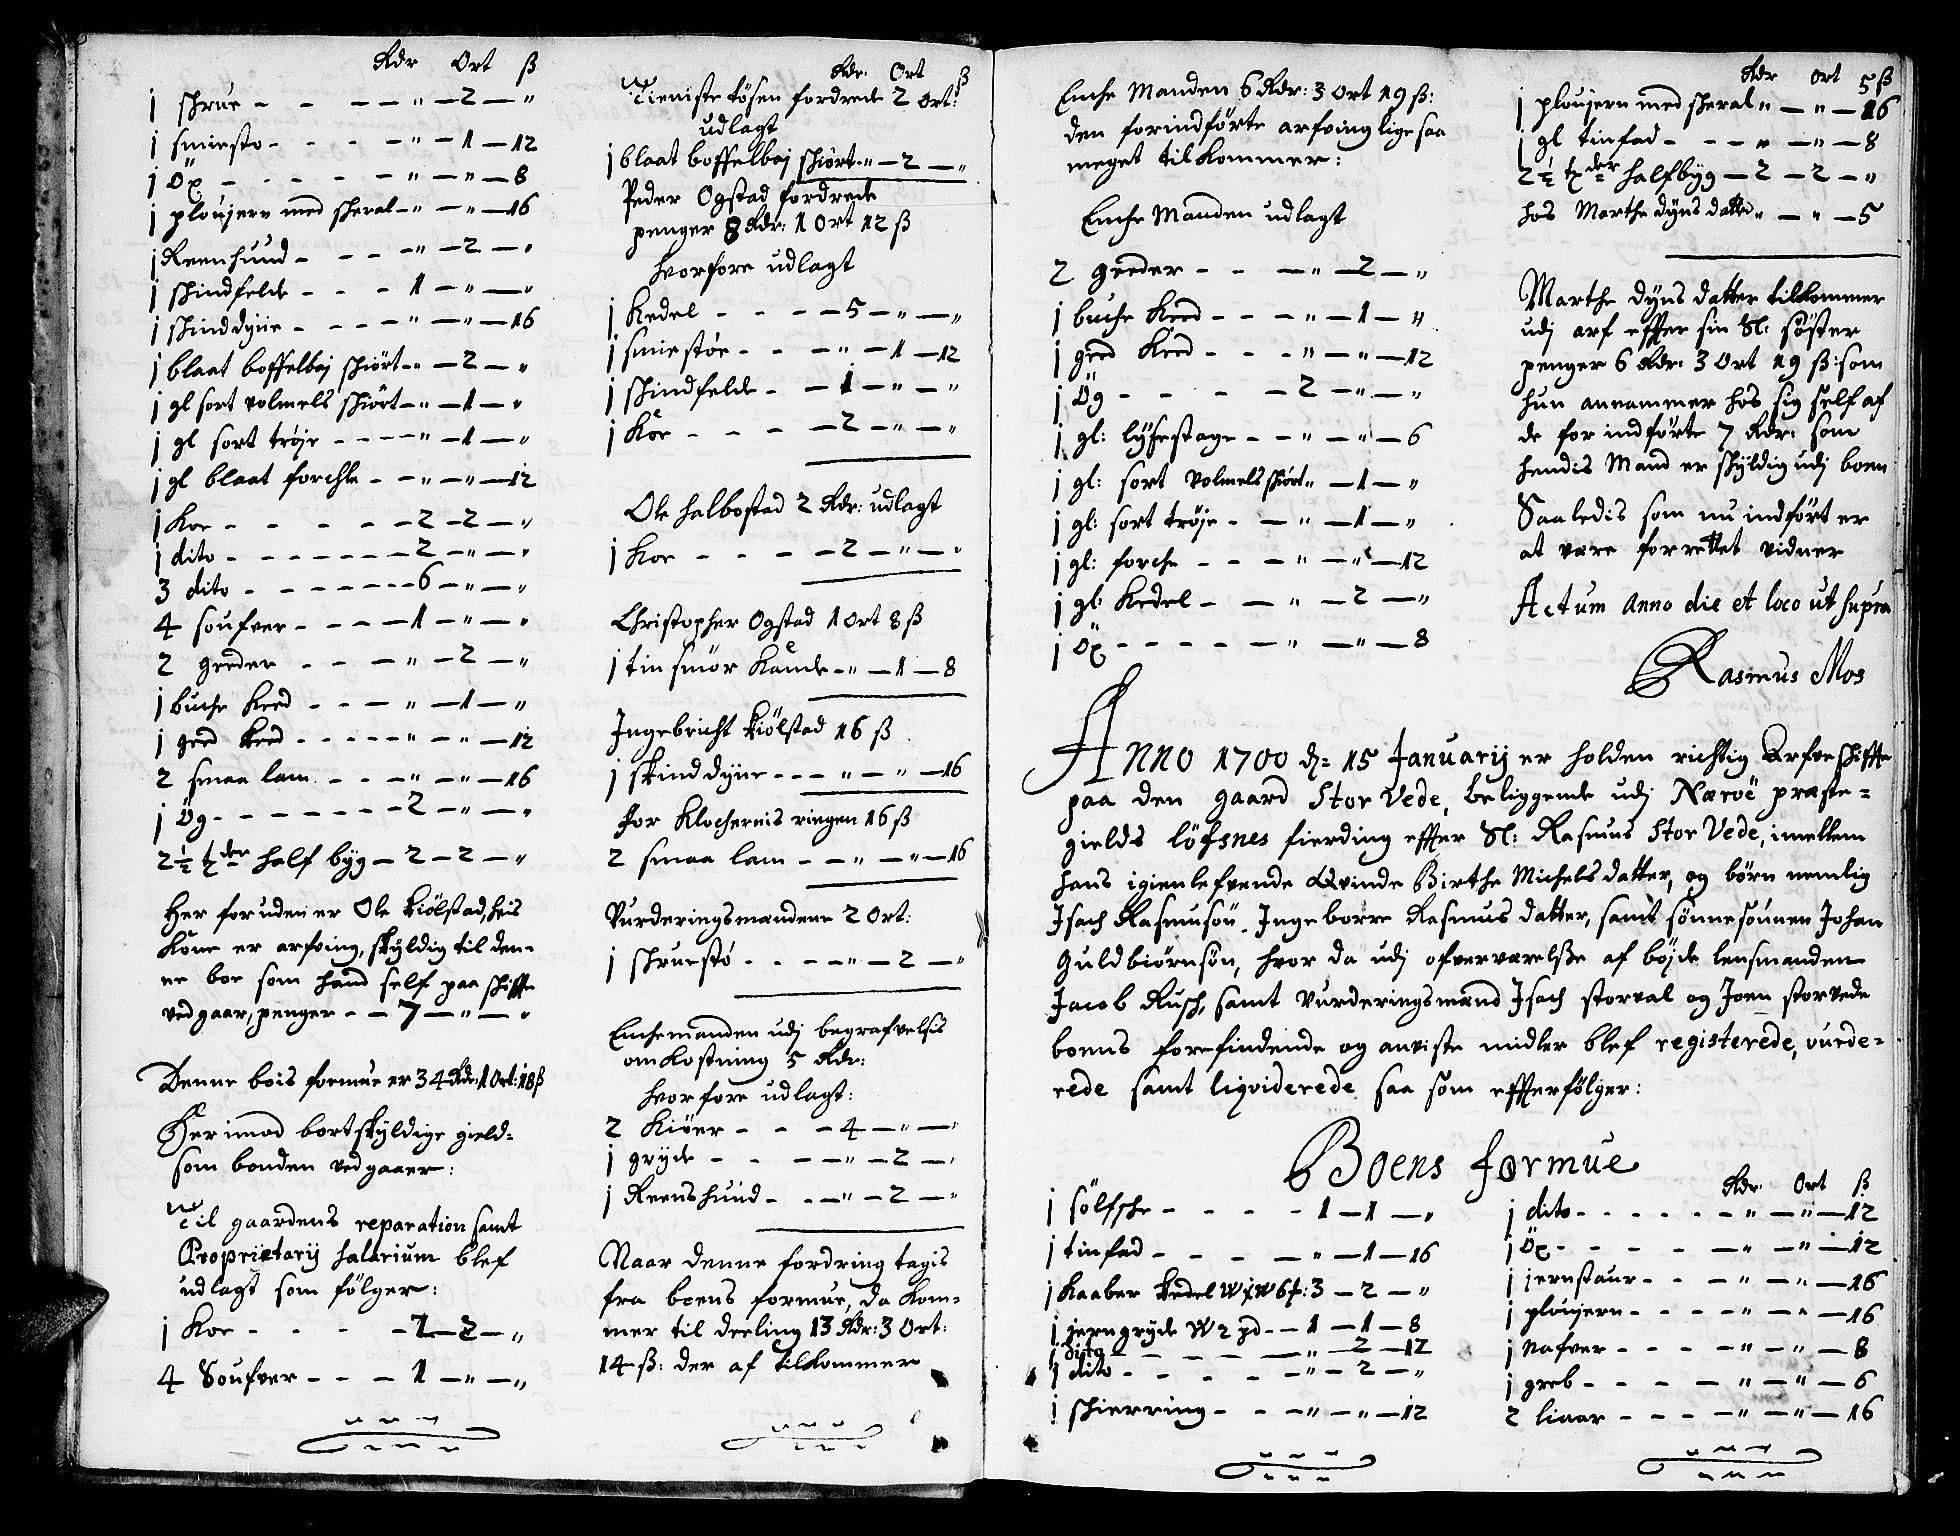 Rdr Ort ß
1 skrue - - - - - " - 2 - "
1 smiesto - - - - " - 1 - 12
1 Öx - - - - - " - " - 8
1 ploujern med skeral - " - " - 16
1 Reenhuud - - - - " - 2 - "
1 skindfelde - - - 1 - " - "
1 skinddyne - - - - " - " - 16
1 blaat boffelbaj skiört - " - 2 - "
1 gl sort volmels skiört - " - 1 - "
1 gl sort tröje - - - - " - 1 - "
1 gl blaat forchle - - " - " - 12
1 Koe - - - - - 2 - 2 - "
1 dito - - - - - - - 2 - " - "
3 dito - - - - - - 6 - " - "
4 soufver - - - - 1 - " - "
2 geeder - - - " - 2 - "
1 buche Keed - - - " - 1 - "
1 geed Keed - - - - - " - " - 12
2 smaa lam - - - " - " - 16
1 Ög - - - - - - - 2 - " - "
2½ tder half byg - 2 - 2 - "
Her foruden er Ole Kiölstad, hvis
Kone er arfving, skyldig til den-
ne boe som hand self paa skiffte
vedgaar, penger - - 7 - " - "
Denne bois formue er 34 Rdr: 1 Ort: 18 ß
Herimod bortskyldige gield
som bonden vedgaaer:
Til gaardens reparation samt
Proprietarij Salarium blef
udlagt som fölger:
1 Koe - - - - - 2 - 2 - "
4 Soufver - - - 1 - " - "
Rdr: Ort ß
Tieniste tösen fordrede 2 Ort:
udlagt
1 blaat boffelbaj skiört - " - 2 - "
Peder Ogstad fordrede
penger 8 Rdr: 1 Ort 12 ß
hvorfore udlagt
1 Kedel - - - - 5 - " - "
1 smiestöe - - - " - 1 - 12
1 skindfelde - - 1 - " - "
1 Koe - - - - 2 - " - "
Ole halbostad 2 Rdr: udlagt
1 Koe - - - - 2 - " - "
Christopher Ogstad 1 Ort 8 ß
1 tin smör Kande - " - 1 - 8
Ingebricht Kiölstad 16 ß
1 skinddyne - - - " - " - 16
Jor Klochernis ringen 16 ß
2 smaa lam - - " - " - 16
Vurderingsmændene 2 Ort:
1 skruestö - - - - " - 2 - "
Enchemanden udj begrafvelsis
omKostning 5 Rdr:
hvorfore udlagt:
2 Kiöer - - - 4 - " - "
1 gryde - - - " - 2 - "
1 Reenshuud - - - " - 2 - "
Naar denne fordring tagis
fra boens formue, da Kom-
mer til deeling 13 Rdr: 3 Ort:
14 ß: der af tilKommer
Enche Manden 6 Rdr: 3 Ort 19 ß:
den forindförte arfving lige saa
meget tilKommer:
Enche Manden udlagt
2 geeder - - - " - 2 - "
1 buche Keed - - - " - 1 - "
1 geed Keed - - - " - " - 12
1 Ög - - - - 2 - " - "
1 gl: lysestage - - " - " - 6
1 gl: sort volmels skiört " - 1 - "
1 gl: sort tröje - - " - 1 - "
1 gl: forche - - - " - " - 12
1 gl: Kedel - - " - 2 - "
1 Öx - - - - - - " - " - 8
Rdr Ort ß
1 ploujern med skeral " - " - 16
1 gl tinfad - - - " - " - 8
2½ tder halfbyg - 2 - 2 - "
hos Marthe Dyns datter " - " - 5
Marthe Dyns datter tilKommer
udj arf effter sin Sl: söster
penger 6 Rdr: 3 Ort 19 ß: som
hun annammer hos sig self af
de forindförte 7 Rdr: som
hendis Mand er skyldig udj boen
Saaledis som nu indfört er
at være forrettet vidner
Actum Anno die et loco ut supra
Rasmus Mos
Anno 1700 d: 15 Januarij er holden richtig Arfveskiffte
paa den gaard Stor Vede, beliggende udj Næröe præste-
gields löfsnes fierding effter Sl: Rasmus Stor Vede, imellem
hans igienlefvende Qvinde Birthe Michels datter, og börn nemlig
Isach Rasmusön, Ingeborre Rasmus datter, samt sönnesönnen Johan
Guldbiörnsön, hvor da udj ofverværelsße af böjde lensmanden
Jacob Rusch, samt Vurderingsmænd Isach storval og Joen storvede
boens forefindende og anviste midler blef registerede, vurde-
rede samt liqviderede saa som effterfölger:
Boens formue
1 sölfske - - - - 1 - 1 - "
1 tinfad - - - - " - 1 - 16
1 Kaaber Kedel 3 - 2 - "
1 jerngryde W 2 pd - - 1 - 1 - 8
1 dito - - - - - " - 2 - 12
1 dito - - - - - " - 2 - "
1 skierring - - - " - " - 12
Rdr: Ort ß
1 dito - - - - - - " - " - 12
1 Öx - - - - - " - " - 12
1 jernstaur - - - " - " - 16
1 ploujern - - - - " - " - 16
1 nafver - - - - " - " - 8
1 greb - - - - " - " - 6
2 liaar - - - - " - " - 16